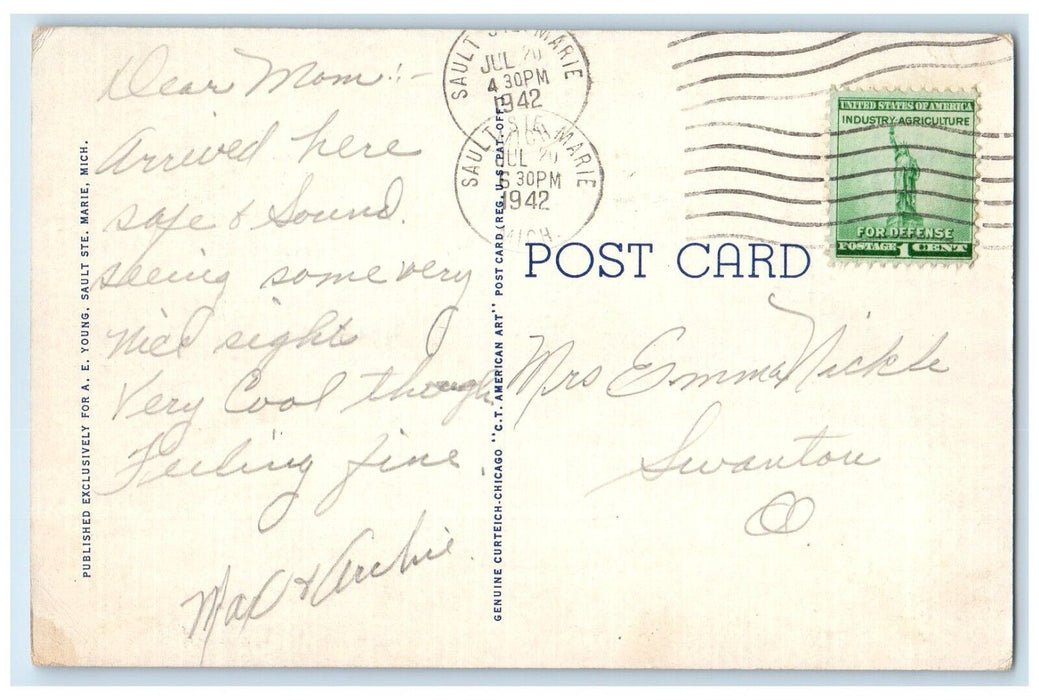 Dear Mom:-
Arrived here
safe & Sound.
seeing some very
nice sights
Very Cool though
Feeling fine.
& Archie.
PUBLISHED EXCLUSIVELY FOR A. E. YOUNG, SAULT STE. MARIE, MICH.
GENUINE CURTEICH-CHICAGO "C.T. AMERICAN ART" POST CARD (REG. U.S. PAT. OFF.)
SAULT STE. MARIE
JUL 20
4 30PM
1942
SAULT STE. MARIE
JUL 20
6 30PM
1942
MICH.
UNITED STATES OF AMERICA
INDUSTRY-AGRICULTURE
FOR DEFENSE
POSTAGE 1 CENT
POST CARD
Mrs Emma Nickle
Swanton
O